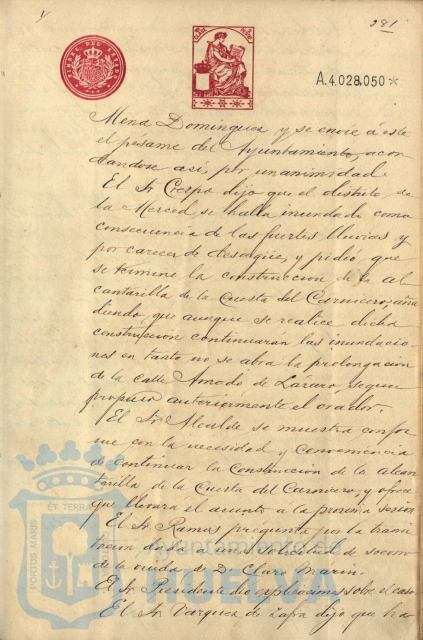 281
TIMBRE DEL ESTADO
A.4.028.050*
Mena Dominguez y se envie á este
el pésame del Ayuntamiento, acor
dandose asi, por unanimidad.
El Sr Crespo dijo que el distrito de
la Merced se halla inundado como
consecuencia de las fuertes lluvias y
por carecer de desagües, y pidió que
se termine la construccion de la al
cantarilla de la Cuesta del Carnicero, aña
diendo que aunque se realice dicha
construccion continuarán las inundacio
nes en tanto no se abra la prolongacion
de la calle Amado de Lázaro, segun
propuso anteriormente el orador.
El Sr Alcalde se muestra confor
me con la necesidad y conveniencia
de continuar la Construccion de la alcan
tarilla de la Cuesta del Carnicero, y ofrece
que llevará el asunto a la proxima sesion
El Sr. Ramos pregunta por la trami
tacion dada a una solicitud de socorro
de la viuda de D. Claro Marin.
El Sr Presidente dió explicaciones sobre el caso.
El Sr Vazquez de Zafra dijo que ha
PORTUS MARIS ET TERRAE
Ayuntamiento de
HUELVA